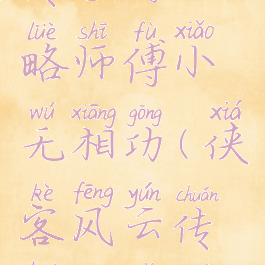 lüè shī fù xiǎo
略师傅小
wú xiāng gōng xiá
无相功(侠
kè fēng yún chuán
客风云传